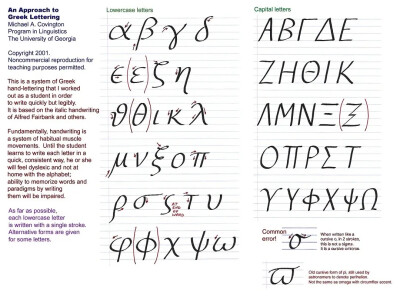 An Approach to
Greek Lettering
Michael A. Covington
Program in Linguistics
The University of Georgia
Copyright 2001.
Noncommercial reproduction for
teaching purposes permitted.
This is a system of Greek
hand-lettering that I worked
out as a student in order
to write quickly but legibly.
It is based on the italic handwriting
of Alfred Fairbank and others.
Fundamentally, handwriting is
a system of habitual muscle
movements. Until the student
learns to write each letter in a
quick, consistent way, he or she
will feel dyslexic and not at
home with the alphabet;
ability to memorize words and
paradigms by writing
them will be impaired.
As far as possible,
each lowercase letter
is written with a single stroke.
Alternative forms are given
for some letters.
Lowercase letters
α β γ δ
ε (ε) ζ η
ϑ (θ) ι κ λ
μ ν ξ ο π
ρ σ ς τ υ
φ (ϕ) χ ψ ω
Capital letters
Α Β Γ Δ Ε
Ζ Η Θ Ι Κ
Λ Μ Ν Ξ (Ξ)
Ο Π Ρ Σ Τ
Υ Υ Φ Χ Ψ Ω
Common
error!
σ
When written like a
cursive o, in 2 strokes,
this is not a sigma.
It is a cursive omicron.
ϖ
Old cursive form of pi, still used by
astronomers to denote perihelion.
Not the same as omega with circumflex accent.